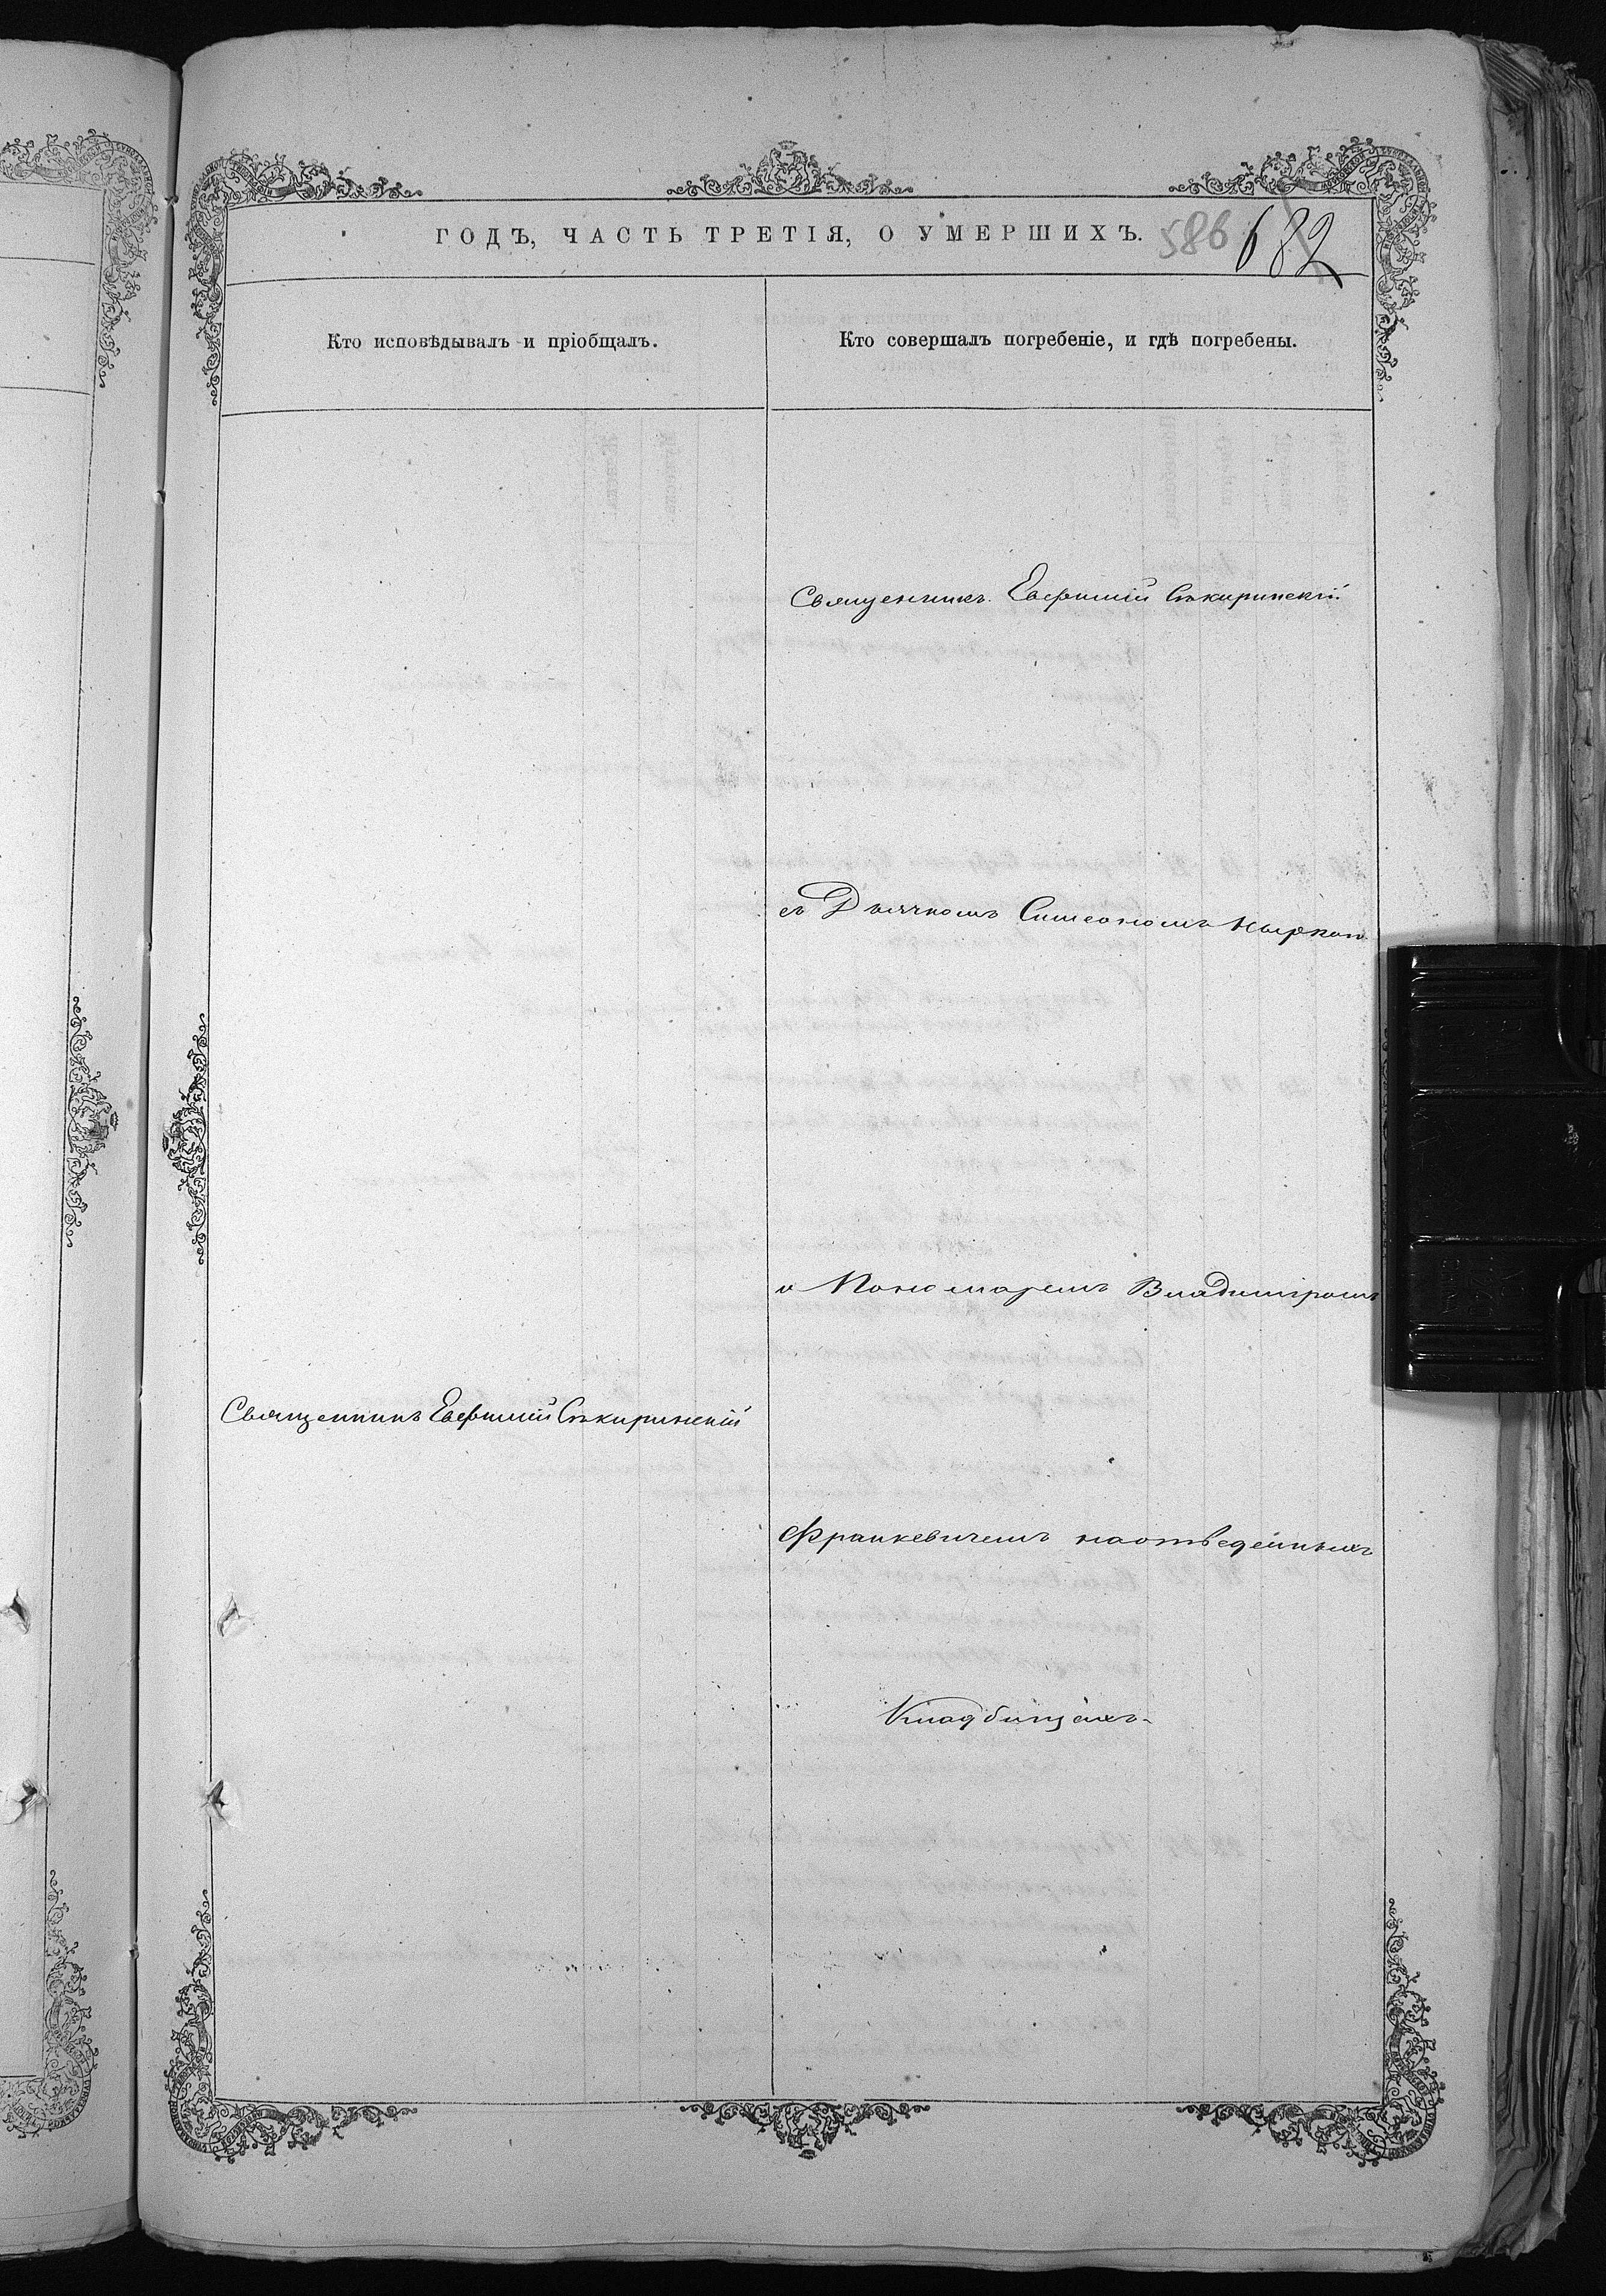 ГОДЪ, ЧАСТЬ ТРЕТІЯ, О УМЕРШИХЪ.
586 682
Кто исповѣдывалъ и пріобщалъ.
Кто совершалъ погребеніе, и гдѣ погребены.
Священникъ Евфимій Сѣкиринскій
съ Дьячкомъ Симеономъ
и Пономаремъ Владиміромъ
Священникъ Евфимій Сѣкиринскій
Франкевичемъ на отведенныхъ
Кладбищахъ